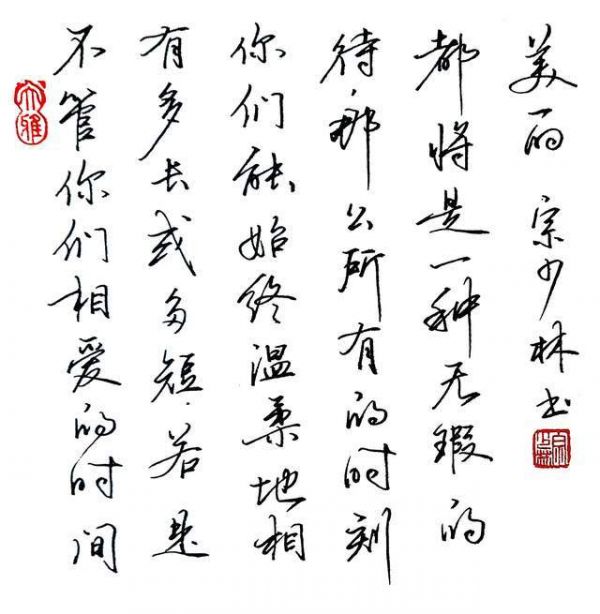 不管你们相爱的时间
有多长或多短，若是
你们能始终温柔地相
待，那么所有的时刻
都将是一种无瑕的
美丽 宗少林书
大雅